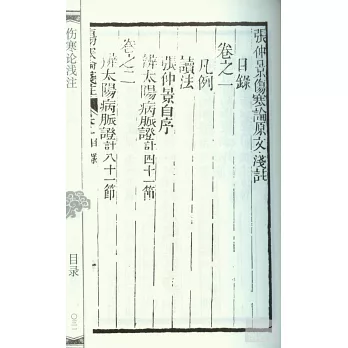 張仲景傷寒論原文淺註
目錄
卷之一
凡例
讀法
張仲景自序
辨太陽病脈證計四十一節
卷之二
辨太陽病脈證計八十一節
傷寒論淺註
目錄
伤寒论浅注
目录